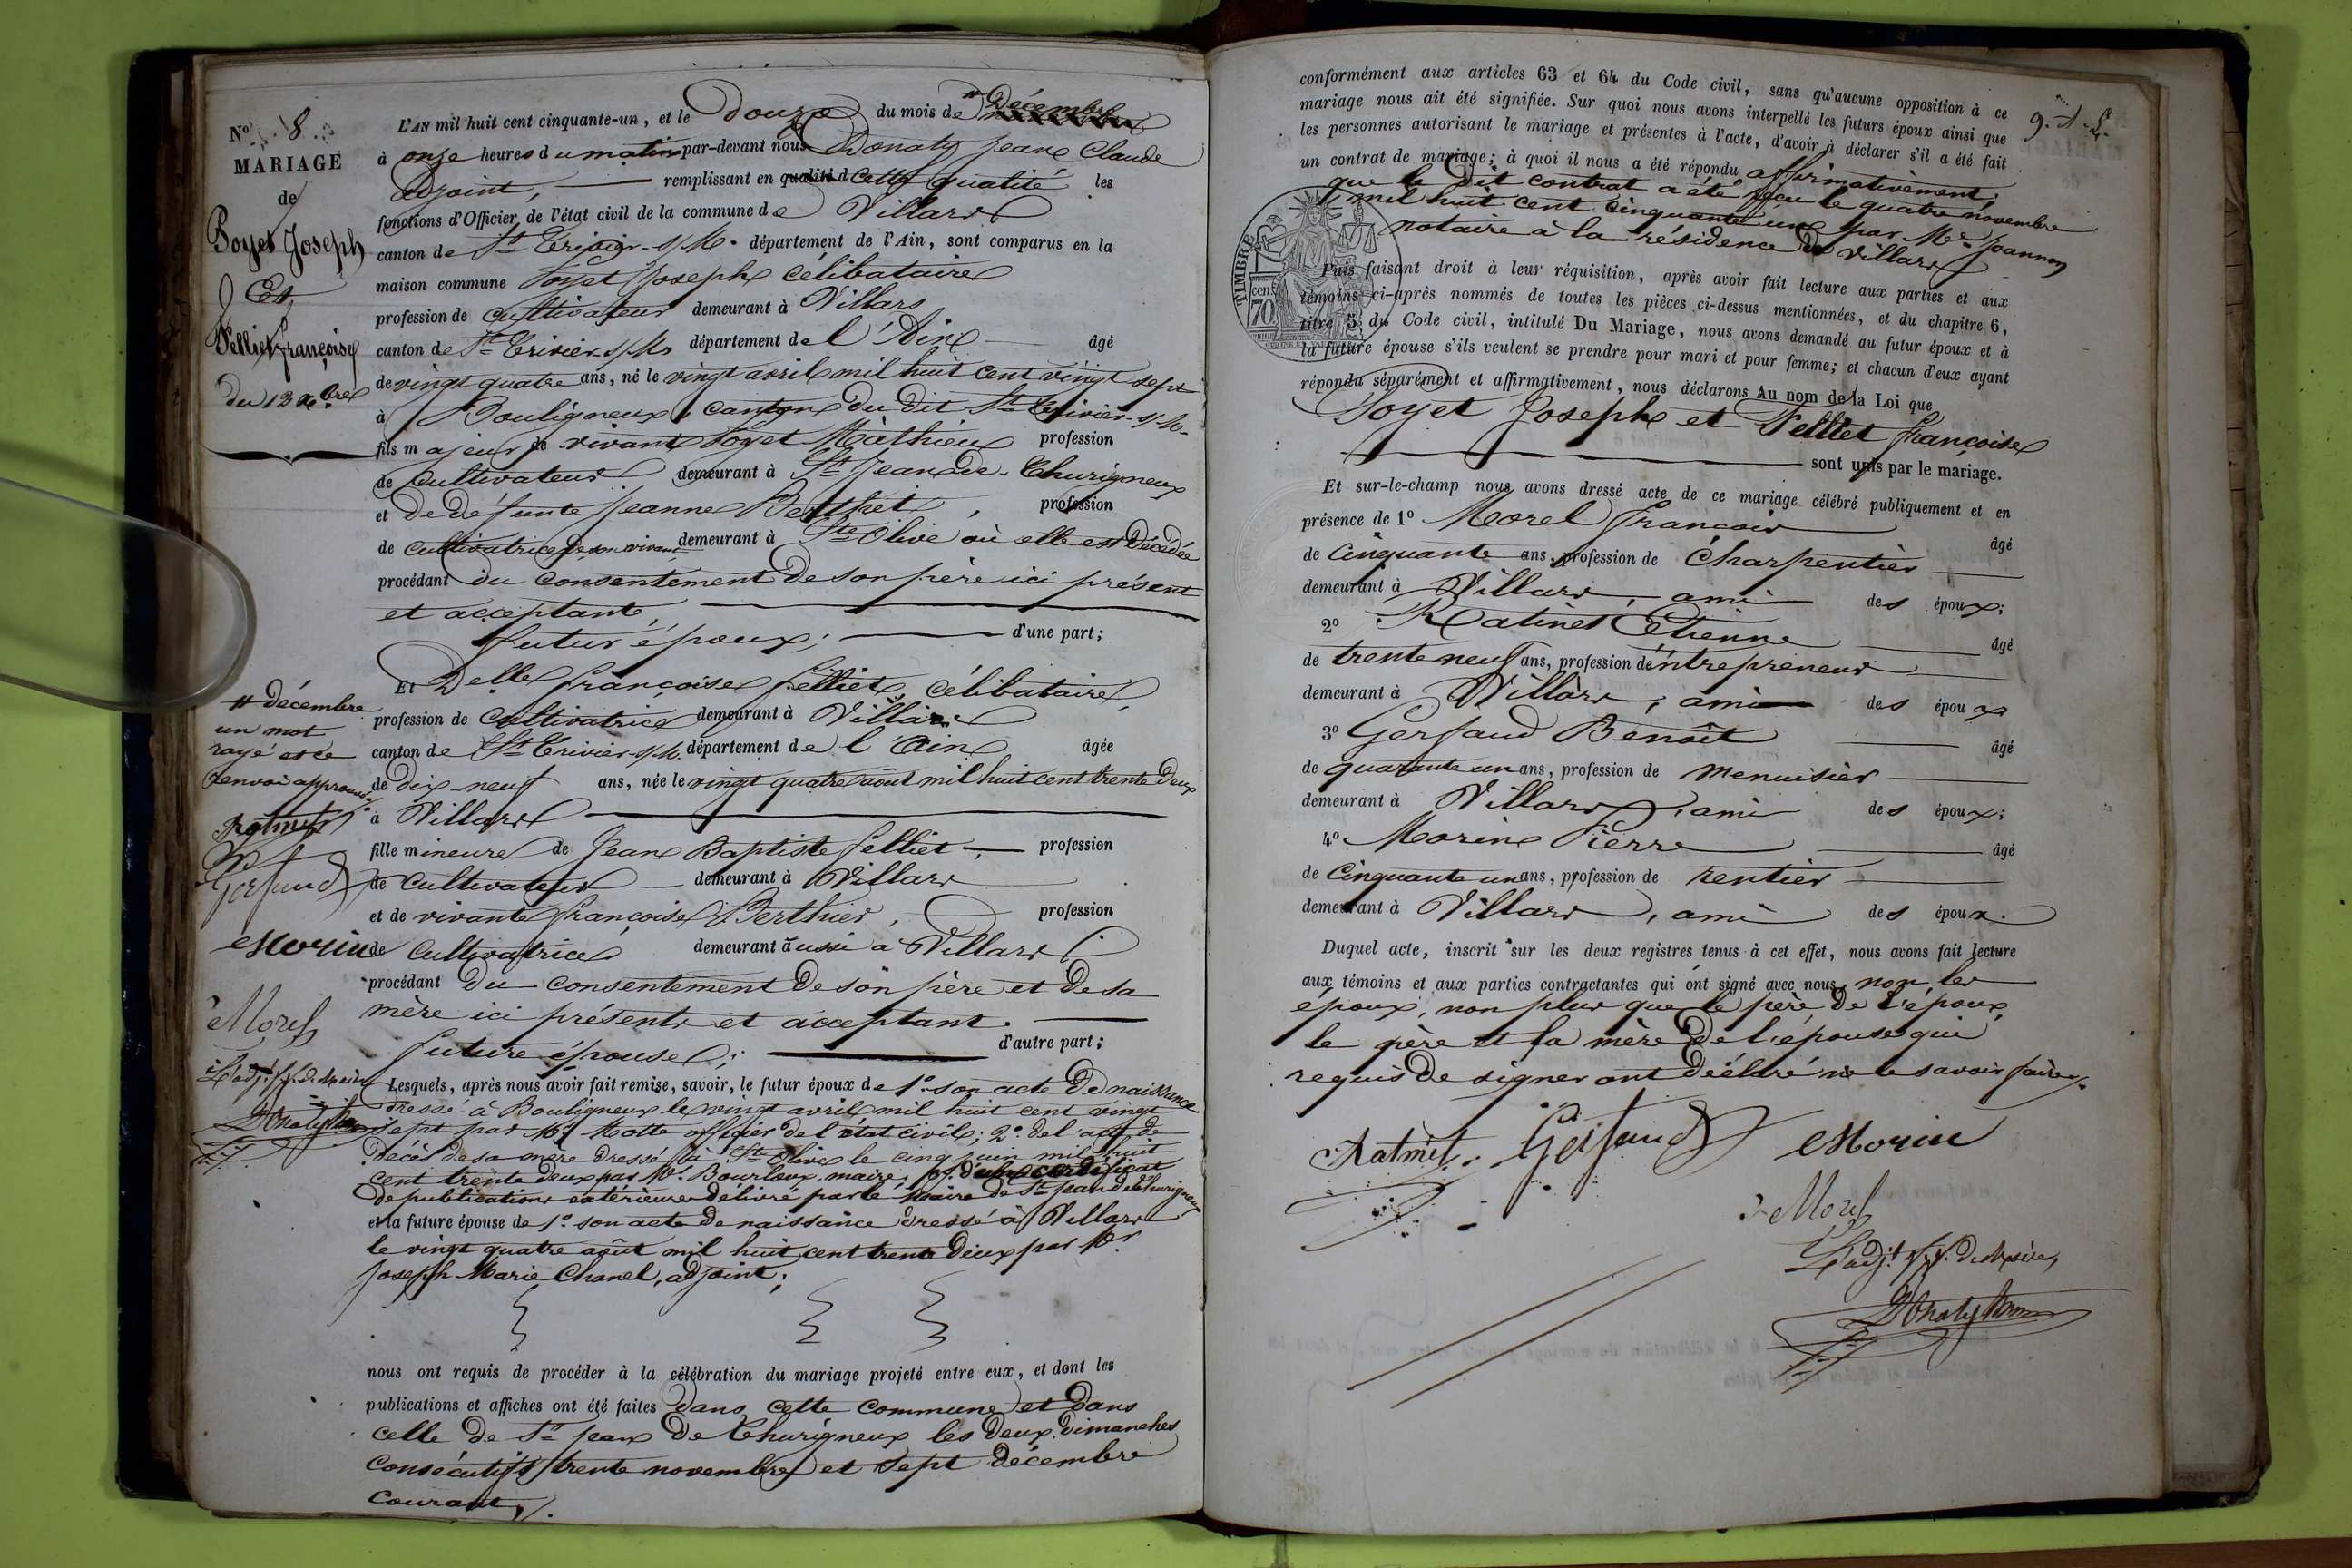 No 8
MARIAGE
de
Poyet Joseph
Et
Felliet françoise
du 12 xbre
L'AN mil huit cent cinquante-un, et le Douze du mois de # Décembre
à onze heures du matin par-devant nous Donaty Jean Claude
adjoint, remplissant en qualité d cette qualité les
fonctions d'Officier de l'état civil de la commune de Villars
canton de St Trivier-s/M. département de l'Ain, sont comparus en la
maison commune Poyet Joseph célibataire
profession de cultivateur demeurant à Villars
canton de St Trivier-s/M. département de l'Ain âgé
de vingt quatre ans, né le vingt avril mil huit cent vingt sept
à Bouligneux canton du dit St Trivier-s/M.
fils majeur de vivant Poyet Mathieu profession
de cultivateur demeurant à St Jean de Thurigneux
et de défunte Jeanne Berthet, profession
de cultivatrice de son vivant demeurant à Ste Olive où elle est décédée
procédant du consentement de son père ici présent
et acceptant,
futur époux; d'une part;
Et Delle françoise felliet, célibataire,
profession de cultivatrice demeurant à Villars
canton de St Trivier-s/M. département de l'Ain âgée
de dix-neuf ans, née le vingt quatre août mil huit cent trente deux
à Villars
fille mineure de Jean Baptiste felliet, profession
de cultivateur demeurant à Villars
et de vivante françoise Berthier, profession
de cultivatrice demeurant aussi à Villars
procédant du consentement de son père et de sa
mère ici présents et acceptant.
future épouse; d'autre part;
# décembre
un mot
rayé et ce
renvoi approuvés
Ratinet
Gerfaud
Morin
Morel
L'adjt f.f. de Maire
Donaty
Lesquels, après nous avoir fait remise, savoir, le futur époux de 1o son acte de naissance
dressé à Bouligneux le vingt avril mil huit cent vingt
sept par Mr Motte officier de l'état civil; 2o de l'acte de
décès de sa mère dressé à Ste Olive le cinq juin mil huit
cent trente deux par Mr. Bourloux, maire, d'un certificat
de publication extérieure délivré par le maire de St Jean de Thurigneux
et la future épouse de 1o son acte de naissance dressé à Villars
le vingt quatre août mil huit cent trente deux par Mr
Joseph Marie Chanel, adjoint;
nous ont requis de procéder à la célébration du mariage projeté entre eux, et dont les
publications et affiches ont été faites dans cette commune et dans
celle de St Jean de Thurigneux les deux dimanches
consécutifs trente novembre et sept décembre
courant,
conformément aux articles 63 et 64 du Code civil, sans qu'aucune opposition à ce
mariage nous ait été signifiée. Sur quoi nous avons interpellé les futurs époux ainsi que
les personnes autorisant le mariage et présentes à l'acte, d'avoir à déclarer s'il a été fait
un contrat de mariage; à quoi il nous a été répondu affirmativement;
que le dit contrat a été reçu le quatre novembre
mil huit cent cinquante un par Me Joannon
notaire à la résidence de Villars
TIMBRE
cen.
70
Puis faisant droit à leur réquisition, après avoir fait lecture aux parties et aux
témoins ci-après nommés de toutes les pièces ci-dessus mentionnées, et du chapitre 6,
titre 5 du Code civil, intitulé Du Mariage, nous avons demandé au futur époux et à
la future épouse s'ils veulent se prendre pour mari et pour femme; et chacun d'eux ayant
répondu séparément et affirmativement, nous déclarons Au nom de la Loi que
Poyet Joseph et Felliet françoise
sont unis par le mariage.
Et sur-le-champ nous avons dressé acte de ce mariage célébré publiquement et en
présence de 1o Morel françois âgé
de cinquante ans, profession de Charpentier
demeurant à Villars, ami des époux;
2o Ratinet Etienne âgé
de trente neuf ans, profession d'entrepreneur
demeurant à Villars, ami des époux
3o Gerfaud Benoît âgé
de quarante un ans, profession de menuisier
demeurant à Villars, ami des époux;
4o Morin Pierre âgé
de cinquante un ans, profession de rentier
demeurant à Villars, ami des époux.
Duquel acte, inscrit sur les deux registres tenus à cet effet, nous avons fait lecture
aux témoins et aux parties contractantes qui ont signé avec nous, non les
époux, non plus que le père de l'époux
le père et la mère de l'épouse qui
requis de signer ont déclaré ne le savoir faire.
Ratinet Gerfaud Morin
Morel
L'adjt f.f. de Maire,
Donaty